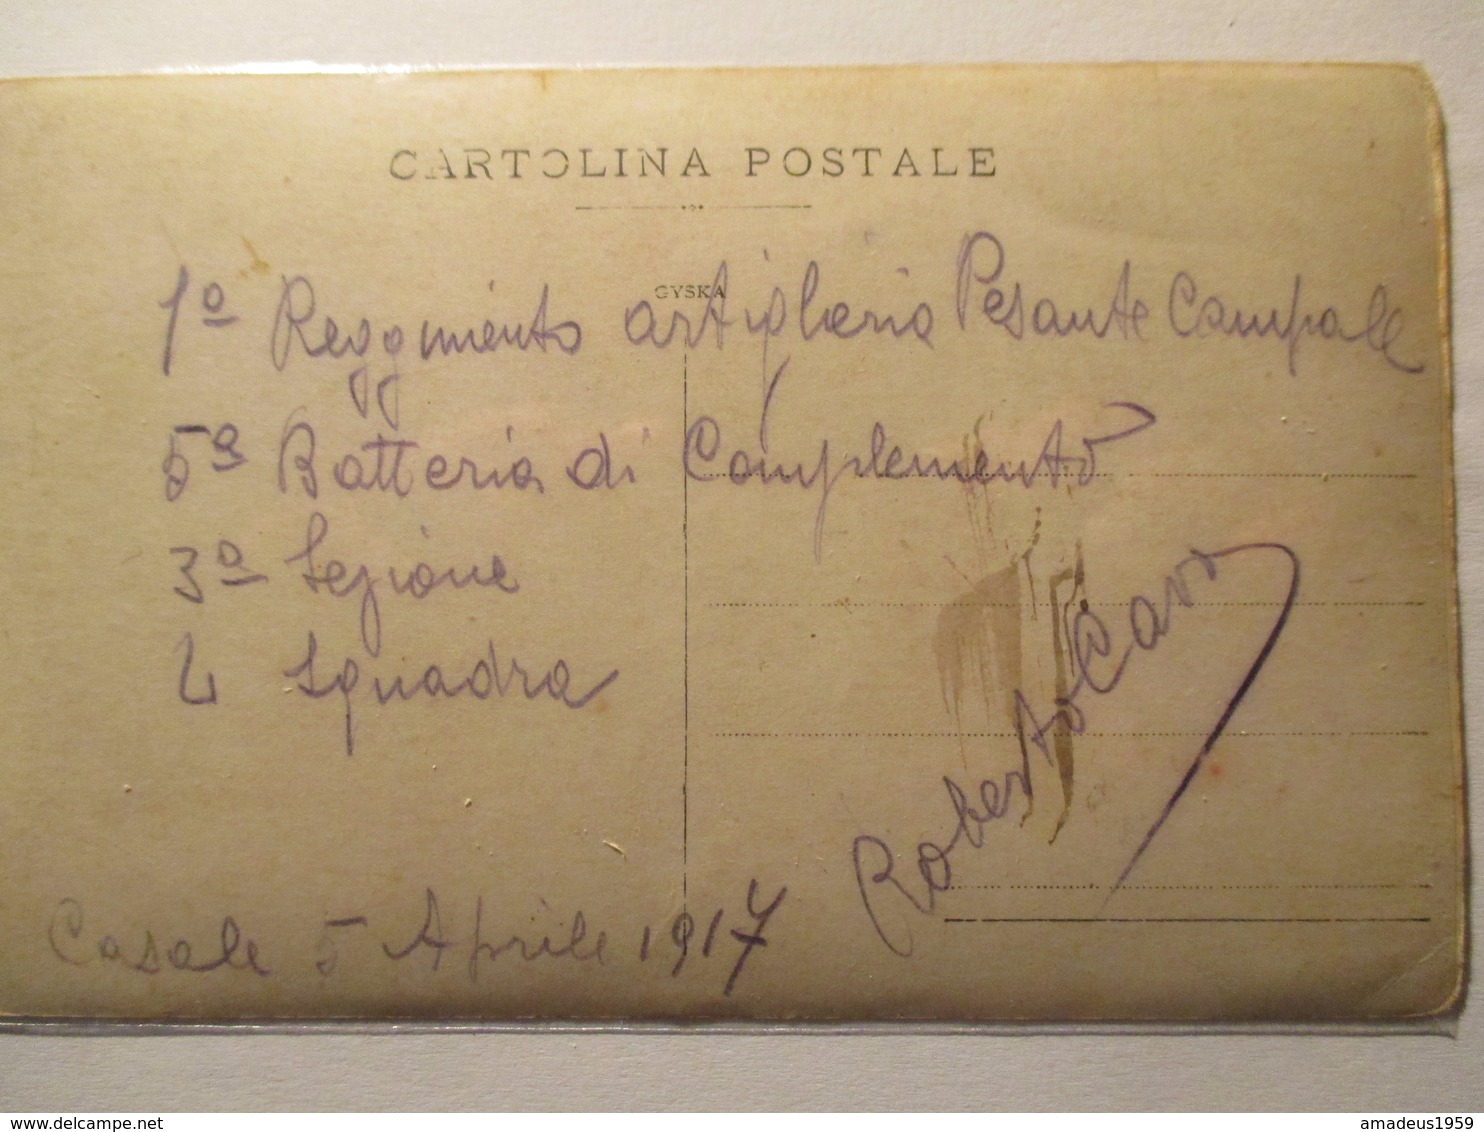 CARTOLINA POSTALE
GYSKA
1º Reggimento artiglieria Pesante Campale
5ª Batteria di Complemento
3ª Sezione
4 Squadra
Roberto Cavo
Casale 5 Aprile 1917
delcampe.net
amadeus1959